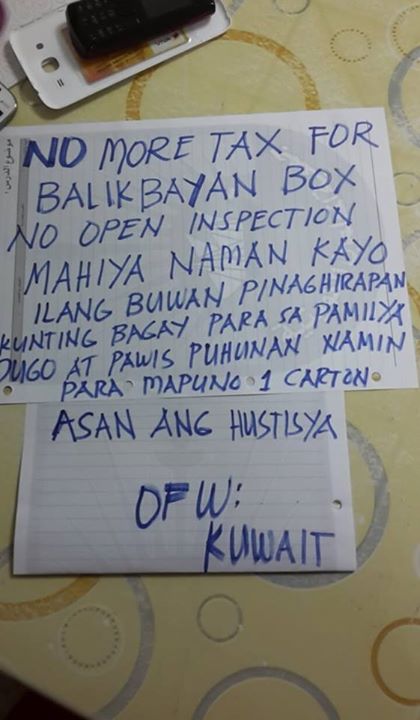 NO MORE TAX FOR
BALIKBAYAN BOX
NO OPEN INSPECTION
MAHIYA NAMAN KAYO
ILANG BUWAN PINAGHIRAPAN
KUNTING BAGAY PARA SA PAMILYA
DUGO AT PAWIS PUHUNAN NAMIN
PARA MAPUNO 1 CARTON
ASAN ANG HUSTISYA
OFW:
KUWAIT
موضوع الدرس: